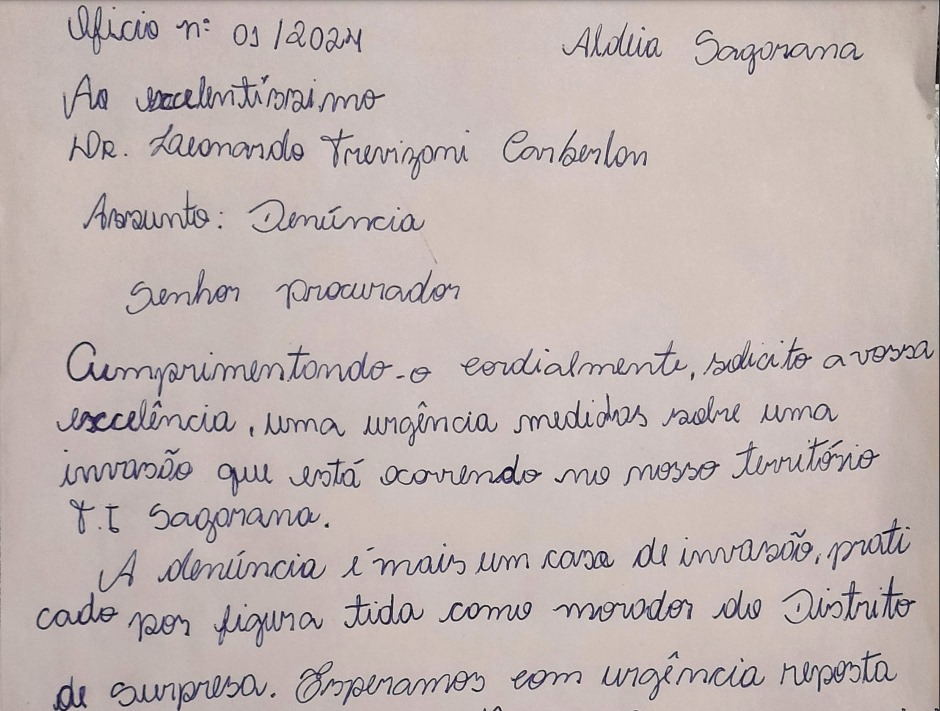 Oficio nº 01/2024 Aldeia Sagorana
Ao excelentíssimo
DR. Laeonardo Trevizoni Carberlon
Assunto: Denúncia
Senhor procurador
Cumprimentondo-o cordialmente, solicito a vossa
excelência, uma urgência medidas sobre uma
invasão que está ocorrendo no nosso território
T.I Sagorana.
A denúncia é mais um casa de invasão, prati
cado por figura tida como morador do Distrito
de surpresa. Esperamos com urgência reposta